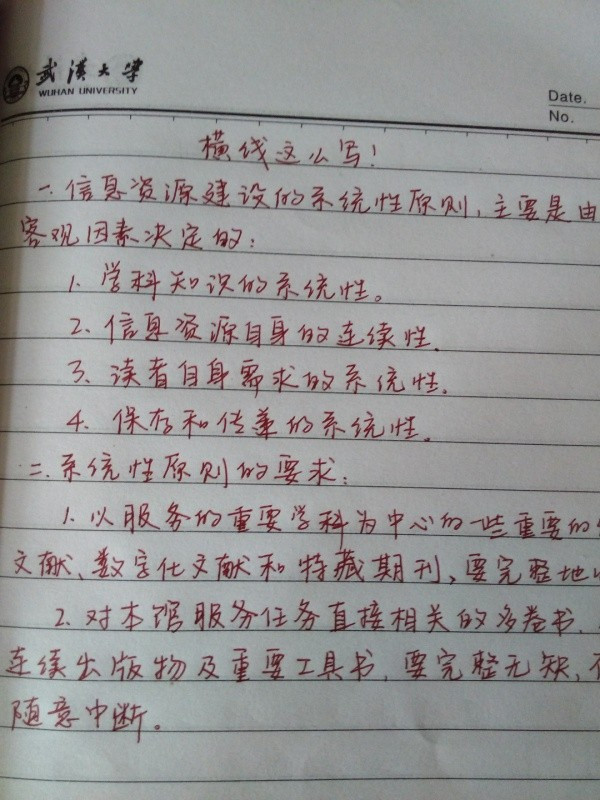 武汉大学
WUHAN UNIVERSITY
Date.
No.
横线这么写!
一.信息资源建设的系统性原则,主要是由
客观因素决定的:
1.学科知识的系统性。
2.信息资源自身的连续性.
3、读者自身需求的系统性.
4.保存和传递的系统性.
二.系统性原则的要求:
1.以服务的重要学科为中心的一些重要的
文献、数字化文献和特藏期刊、要完整地
2.对本馆服务任务直接相关的多卷书、
连续出版物及重要工具书,要完整无缺,
随意中断。